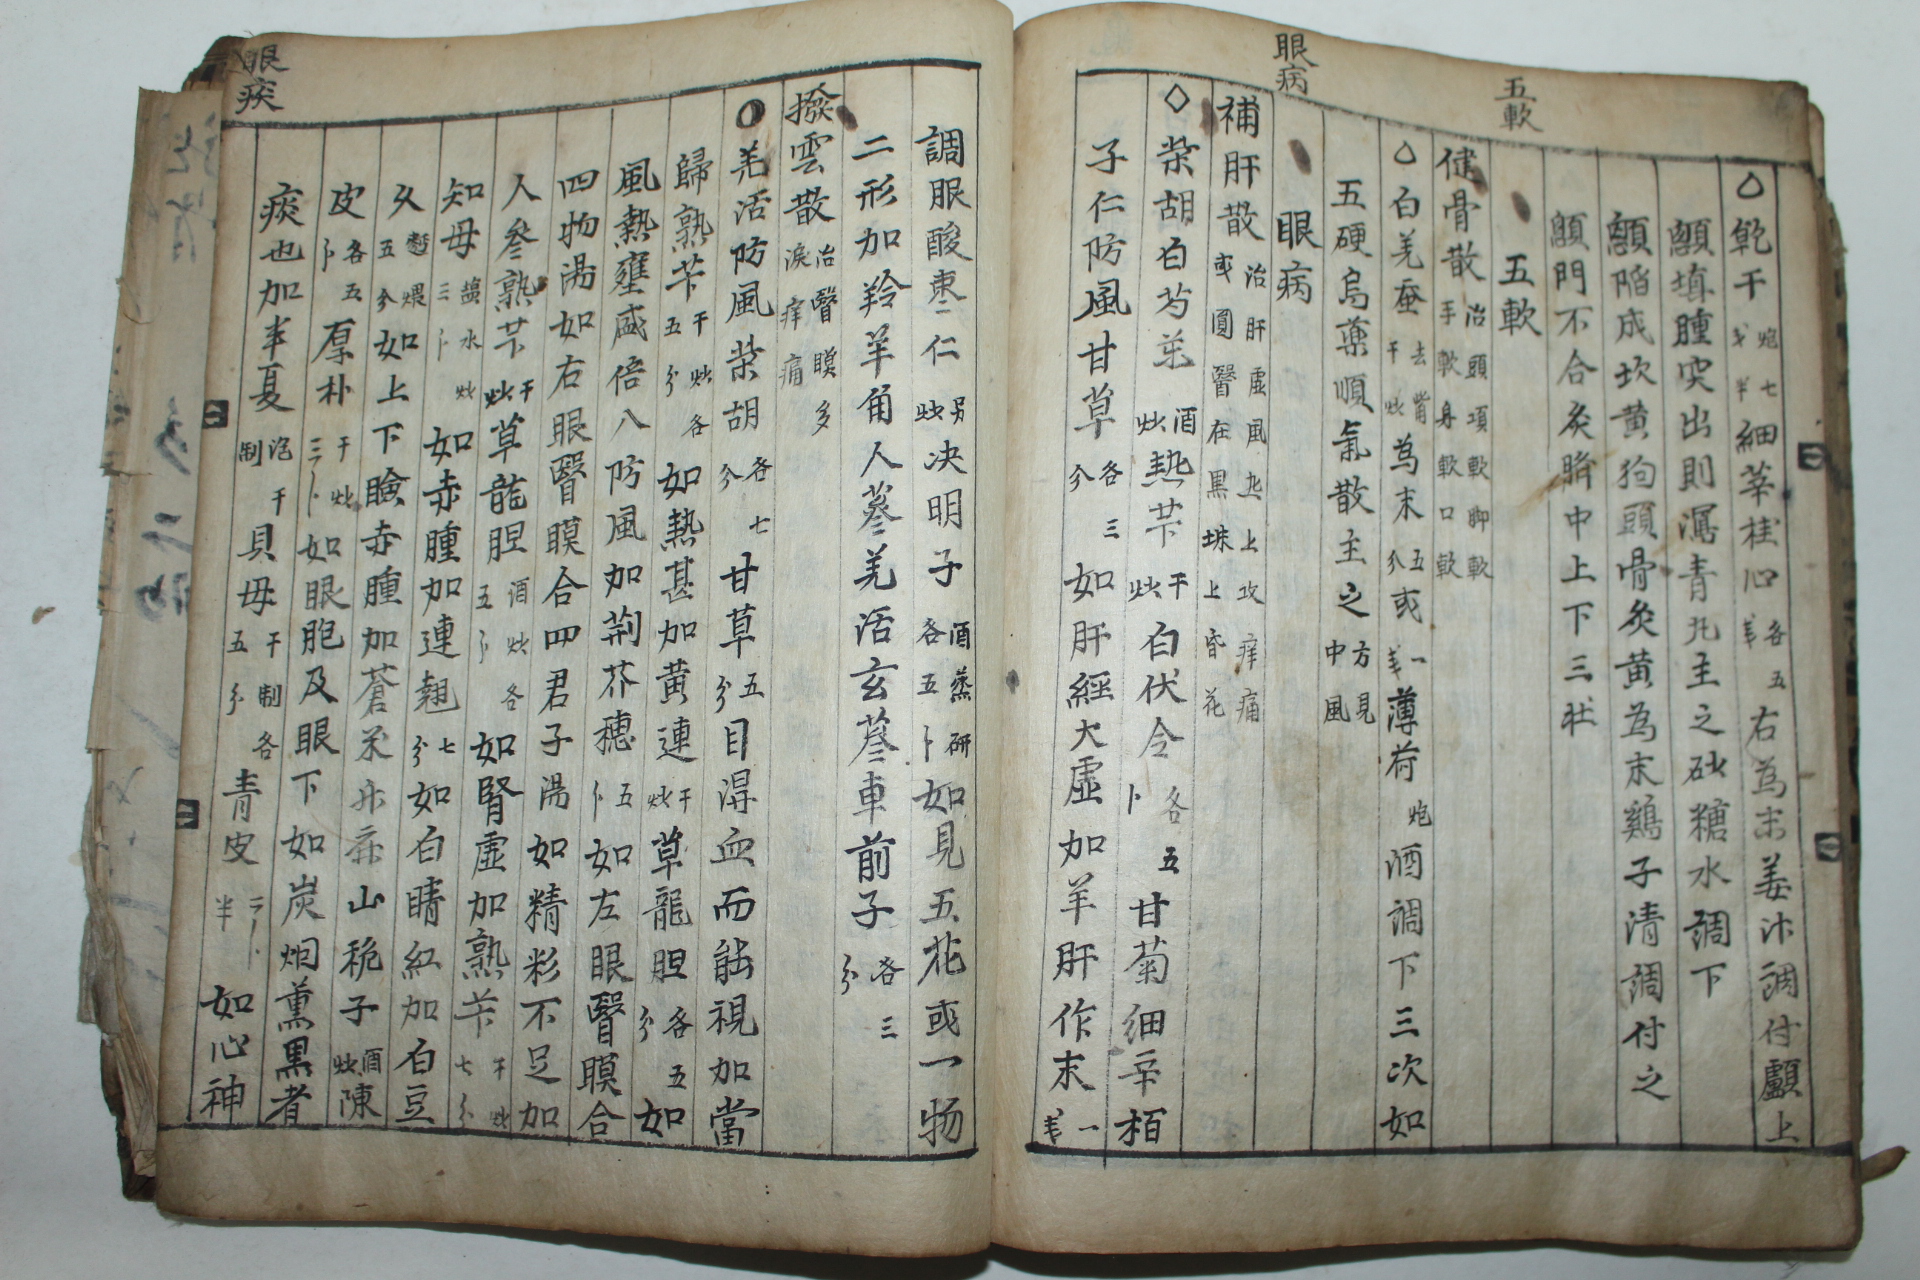 五軟
眼病
乾干炮七戔半細莘桂心各五戔右為末姜汁調付顱上
顖填腫突出則瀉青丸主之砂糖水調下
顖陷成坎黄狗頭骨灸黄為末鷄子清調付之
顖門不合灸臍中上下三壯
五軟
健骨散治頭項軟脚軟手軟身軟口軟
白羌蚕去觜干炒為末五分或一戔薄荷炮酒調下三次如
五硬烏藥順氣散主之方見中風
眼病
補肝散治肝虛風熱上攻痒痛或圓翳在黑珠上昏花
柴胡白芍藥酒炒熟芐干炒白伏令各五卜甘菊細辛栢
子仁防風甘草各三分如肝經大虛加羊肝作末一戔
眼痰
調眼酸棗仁另炒决明子酒蒸研各五卜如見五花或一物
二形加羚羊角人蔘羌活玄蔘車前子各三分
撥雲散治翳膜多淚痒痛
羌活防風柴胡各七分甘草五分目淂血而能視加當
歸熟芐干炒各五分如熱甚加黄連干炒草龍胆各五分如
風熱壅盛倍八防風加荆芥穗五卜如左眼翳膜合
四物湯如右眼翳膜合四君子湯如精彩不足加
人參熟芐干炒草龍胆酒炒各五卜如腎虛加熟芐干炒七分
知母塩水炒三卜如赤腫加連翹七分如白睛紅加白豆
久麪煨五分如上下瞼赤腫加蒼朮升麻山梔子酒炒陳
皮各五卜厚朴干炒三卜如眼胞及眼下如炭烟薰黒者
痰也加半夏泡干制貝母干制各五分青皮二卜半如心神